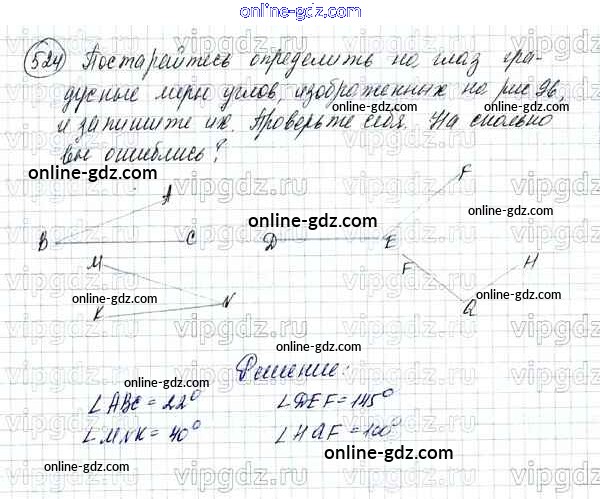 online-gdz.com
524 Постарайтесь определить на глаз гра-
дусные меры углов, изображенных на рис 96,
и запишите их. Проверьте себя. На сколько
вы ошиблись?
online-gdz.com
A F
online-gdz.com online-gdz.com
B C D E
online-gdz.com
M F H
online-gdz.com online-gdz.com
K N Q
online-gdz.com
Решение:
online-gdz.com
∠ABC = 22° ∠DEF = 145°
∠MNK = 40° ∠HQF = 100°
online-gdz.com
online-gdz.com
vipgdz.ru